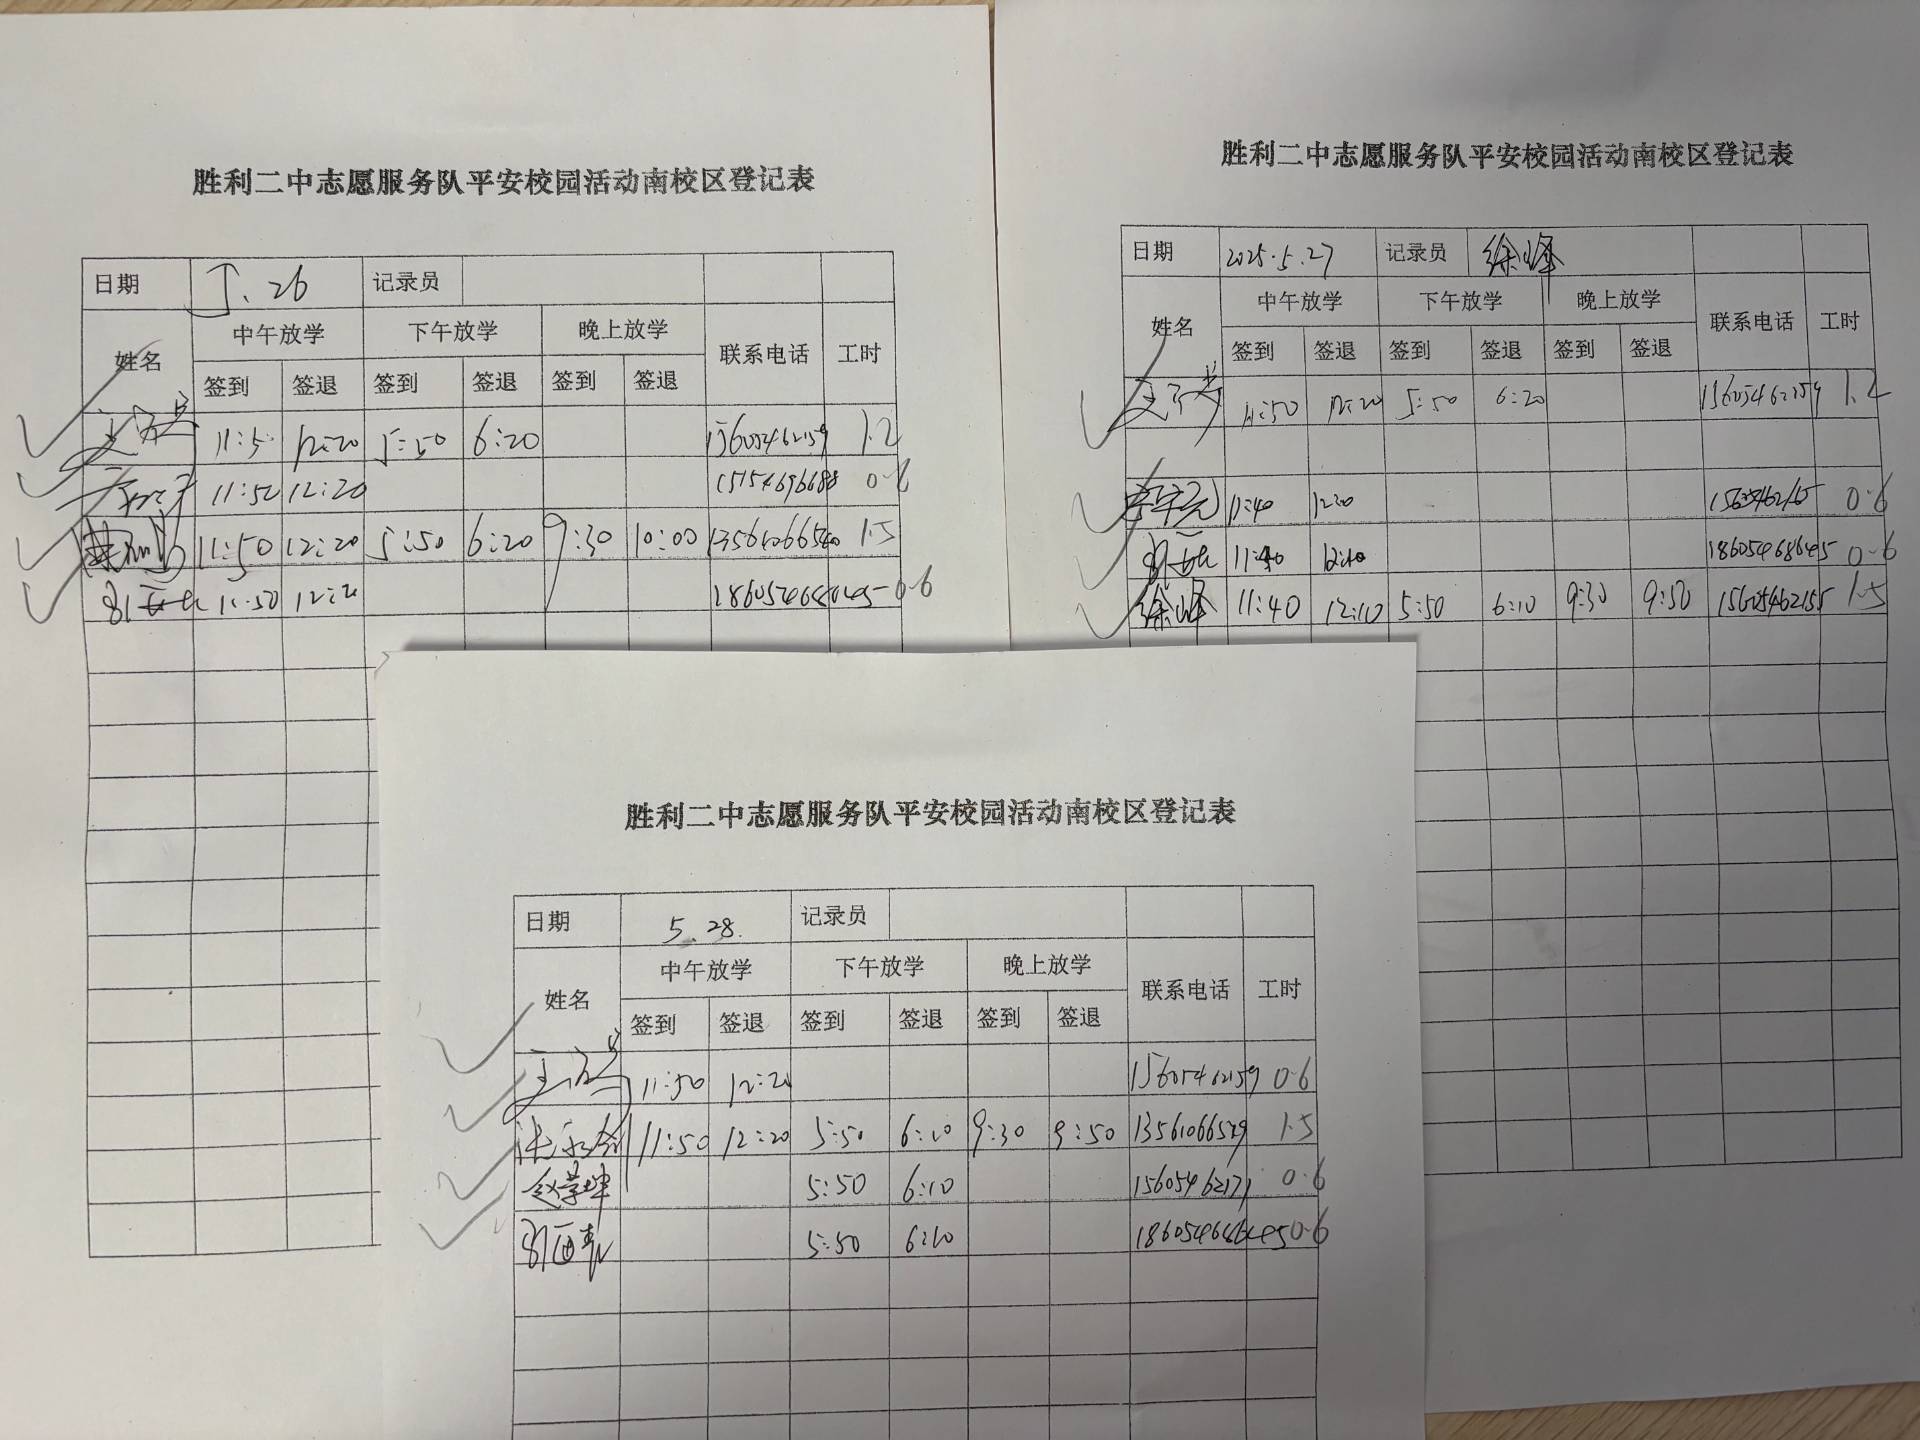 胜利二中志愿服务队平安校园活动南校区登记表
日期 5.26 记录员
姓名 中午放学 下午放学 晚上放学 联系电话 工时
签到 签退 签到 签退 签到 签退
11:50 12:20 5:50 6:20 15605462159 1.2
11:50 12:20 15154696688
11:50 12:20 5:50 6:20 9:30 10:00 1.5
11:50 12:20 0.6
胜利二中志愿服务队平安校园活动南校区登记表
日期 2025.5.27 记录员 徐峰
姓名 中午放学 下午放学 晚上放学 联系电话 工时
签到 签退 签到 签退 签到 签退
11:50 12:20 5:50 6:20 15605462159 1.2
11:40 0.6
18605468645 0.6
徐峰 11:40 12:10 5:50 6:10 9:30 9:50 15605462155 1.5
胜利二中志愿服务队平安校园活动南校区登记表
日期 5.28. 记录员
姓名 中午放学 下午放学 晚上放学 联系电话 工时
签到 签退 签到 签退 签到 签退
11:50 12:20 15605462159 0.6
11:50 12:20 5:50 6:10 9:30 9:50 1.5
5:50 6:10 15605462171 0.6
5:50 6:10 18605468645 0.6